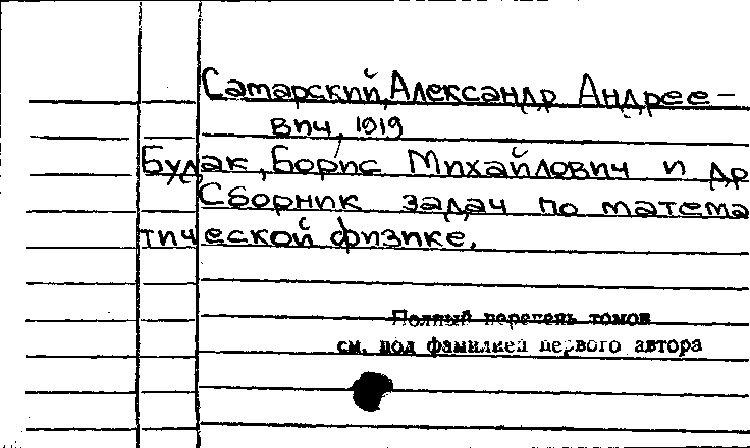 Самарский, Александр Андрее-
вич, 1919
Будак, Борис Михайлович и др
Сборник задач по матема
тической физике.
Полный перечень томов
см. под фамилией первого автора